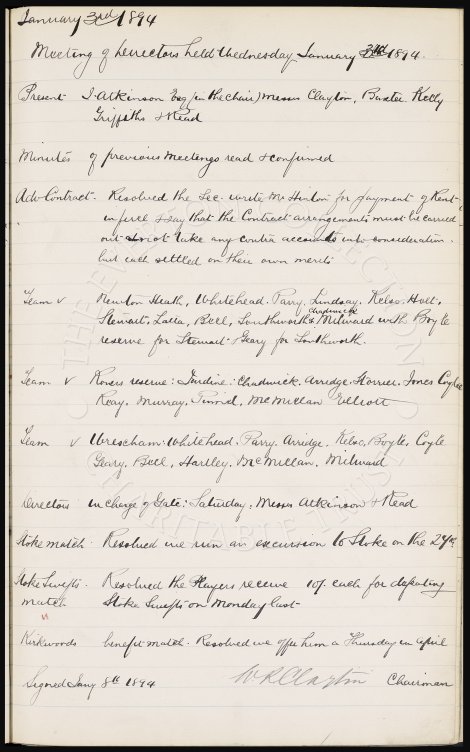 January 3rd 1894
Meeting of Directors held Wednesday January 3rd 1894.
Present J. Atkinson Esq (in the chair) Messrs Clayton, Baxter Kelly
Griffiths & Read
Minutes of previous Meetings read & confirmed
Adv Contract. Resolved the Sec. write Mr Hinton for payment of Rent
in full & say that the Contract arrangements must be carried
out & not take any contra accounts into consideration
but each settled on their own merits
Team v Newton Heath, Whitehead. Parry. Lindsay. Kelso. Holt.
Chadwick
Stewart, Latta, Bell, Southworth & Milward with Boyle
reserve for Stewart Geary for Southworth.
Team v Rovers reserve: Jardine: Chadwick. Arridge. Storrier. Jones Coyle
Reay, Murray, McMillan Elliott
Team v Wrexham: Whitehead. Parry. Arridge, Kelso, Boyle, Coyle
Geary, Bell, Hartley, McMillan, Milward
Directors in charge of Gate: Saturday: Messrs Atkinson & Read
Stoke match. Resolved we run an excursion to Stoke on the 27th.
Stoke Swifts. Resolved the Players receive 10/. each for defeating
match Stoke Swifts on Monday last
Kirkwoods benefit match. Resolved we offer him a Thursday in April
Signed Jany 8th 1894 W.R. Clayton Chairman
THE EVERTON COLLECTION
CHARITABLE TRUST